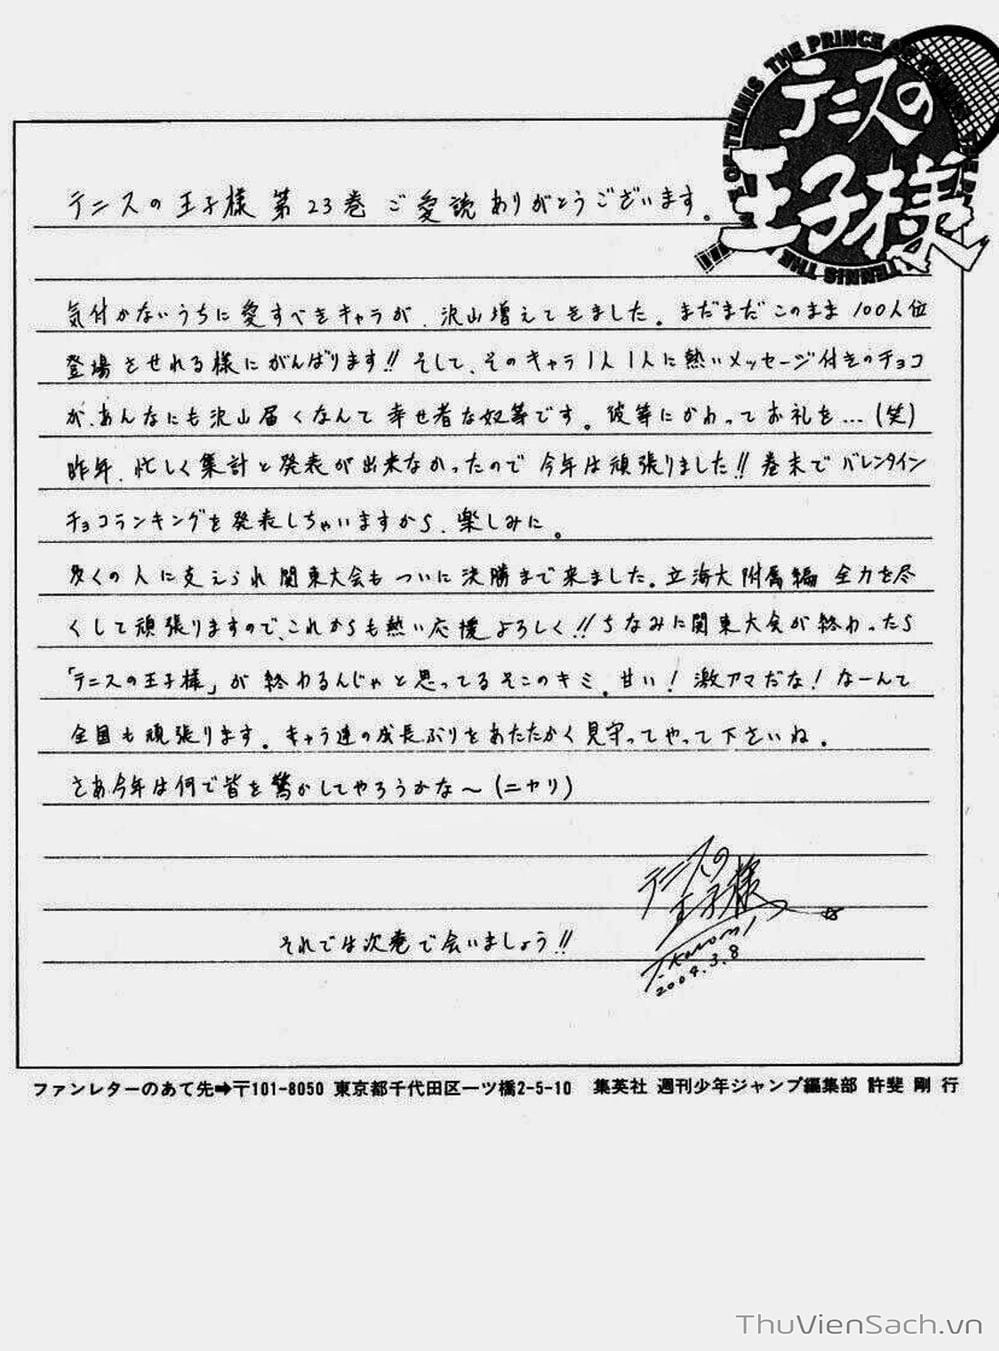 THE PRINCE OF TENNIS
テニスの
王子様
テニスの王子様 第23巻 ご愛読ありがとうございます。
気付かないうちに愛すべきキャラが、沢山増えてきました。まだまだこのまま100人位
登場させれる様にがんばります!!そして、そのキャラ1人1人に熱いメッセージ付きのチョコ
が、あんなにも沢山届くなんて幸せ者な奴等です。彼等にかわってお礼を…(笑)
昨年、忙しく集計と発表が出来なかったので今年は頑張りました!!巻末でバレンタイン
チョコランキングを発表しちゃいますから、楽しみに。
多くの人に支えられ関東大会もついに決勝まで来ました。立海大附属編 全力を尽
くして頑張りますので、これからも熱い応援よろしく!!ちなみに関東大会が終わったら
「テニスの王子様」が終わるんじゃと思ってるそこのキミ。甘い!激アマだな!なーんて
全国も頑張ります。キャラ達の成長ぶりをあたたかく見守ってやって下さいね。
さあ今年は何で皆を驚かしてやろうかな～(ニヤリ)
テニスの
王子様
それでは次巻で会いましょう!!
T.Konomi
2004.3.8
ファンレターのあて先➡〒101-8050 東京都千代田区一ツ橋2-5-10 集英社 週刊少年ジャンプ編集部 許斐 剛 行
ThuVienSach.vn